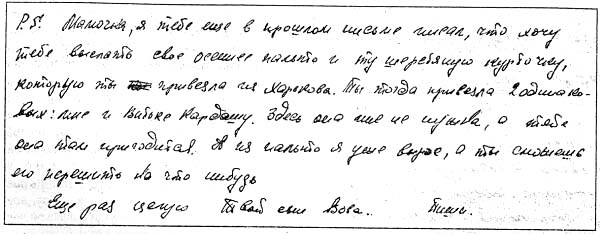 P.S. Мамочка, я тебе еще в прошлом письме писал, что хочу
тебе выслать свое осеннее пальто и ту шерстяную курточку,
которую ты привезла из Харькова. Ты тогда привезла 2 одинако-
вых: мне и Витьке Кардашу. Здесь она мне не нужна, а тебе
она там пригодится. А из пальто я уже вырос, а ты сможешь
его перешить на что нибудь
Еще раз целую Твой сын Вова. Пиши.